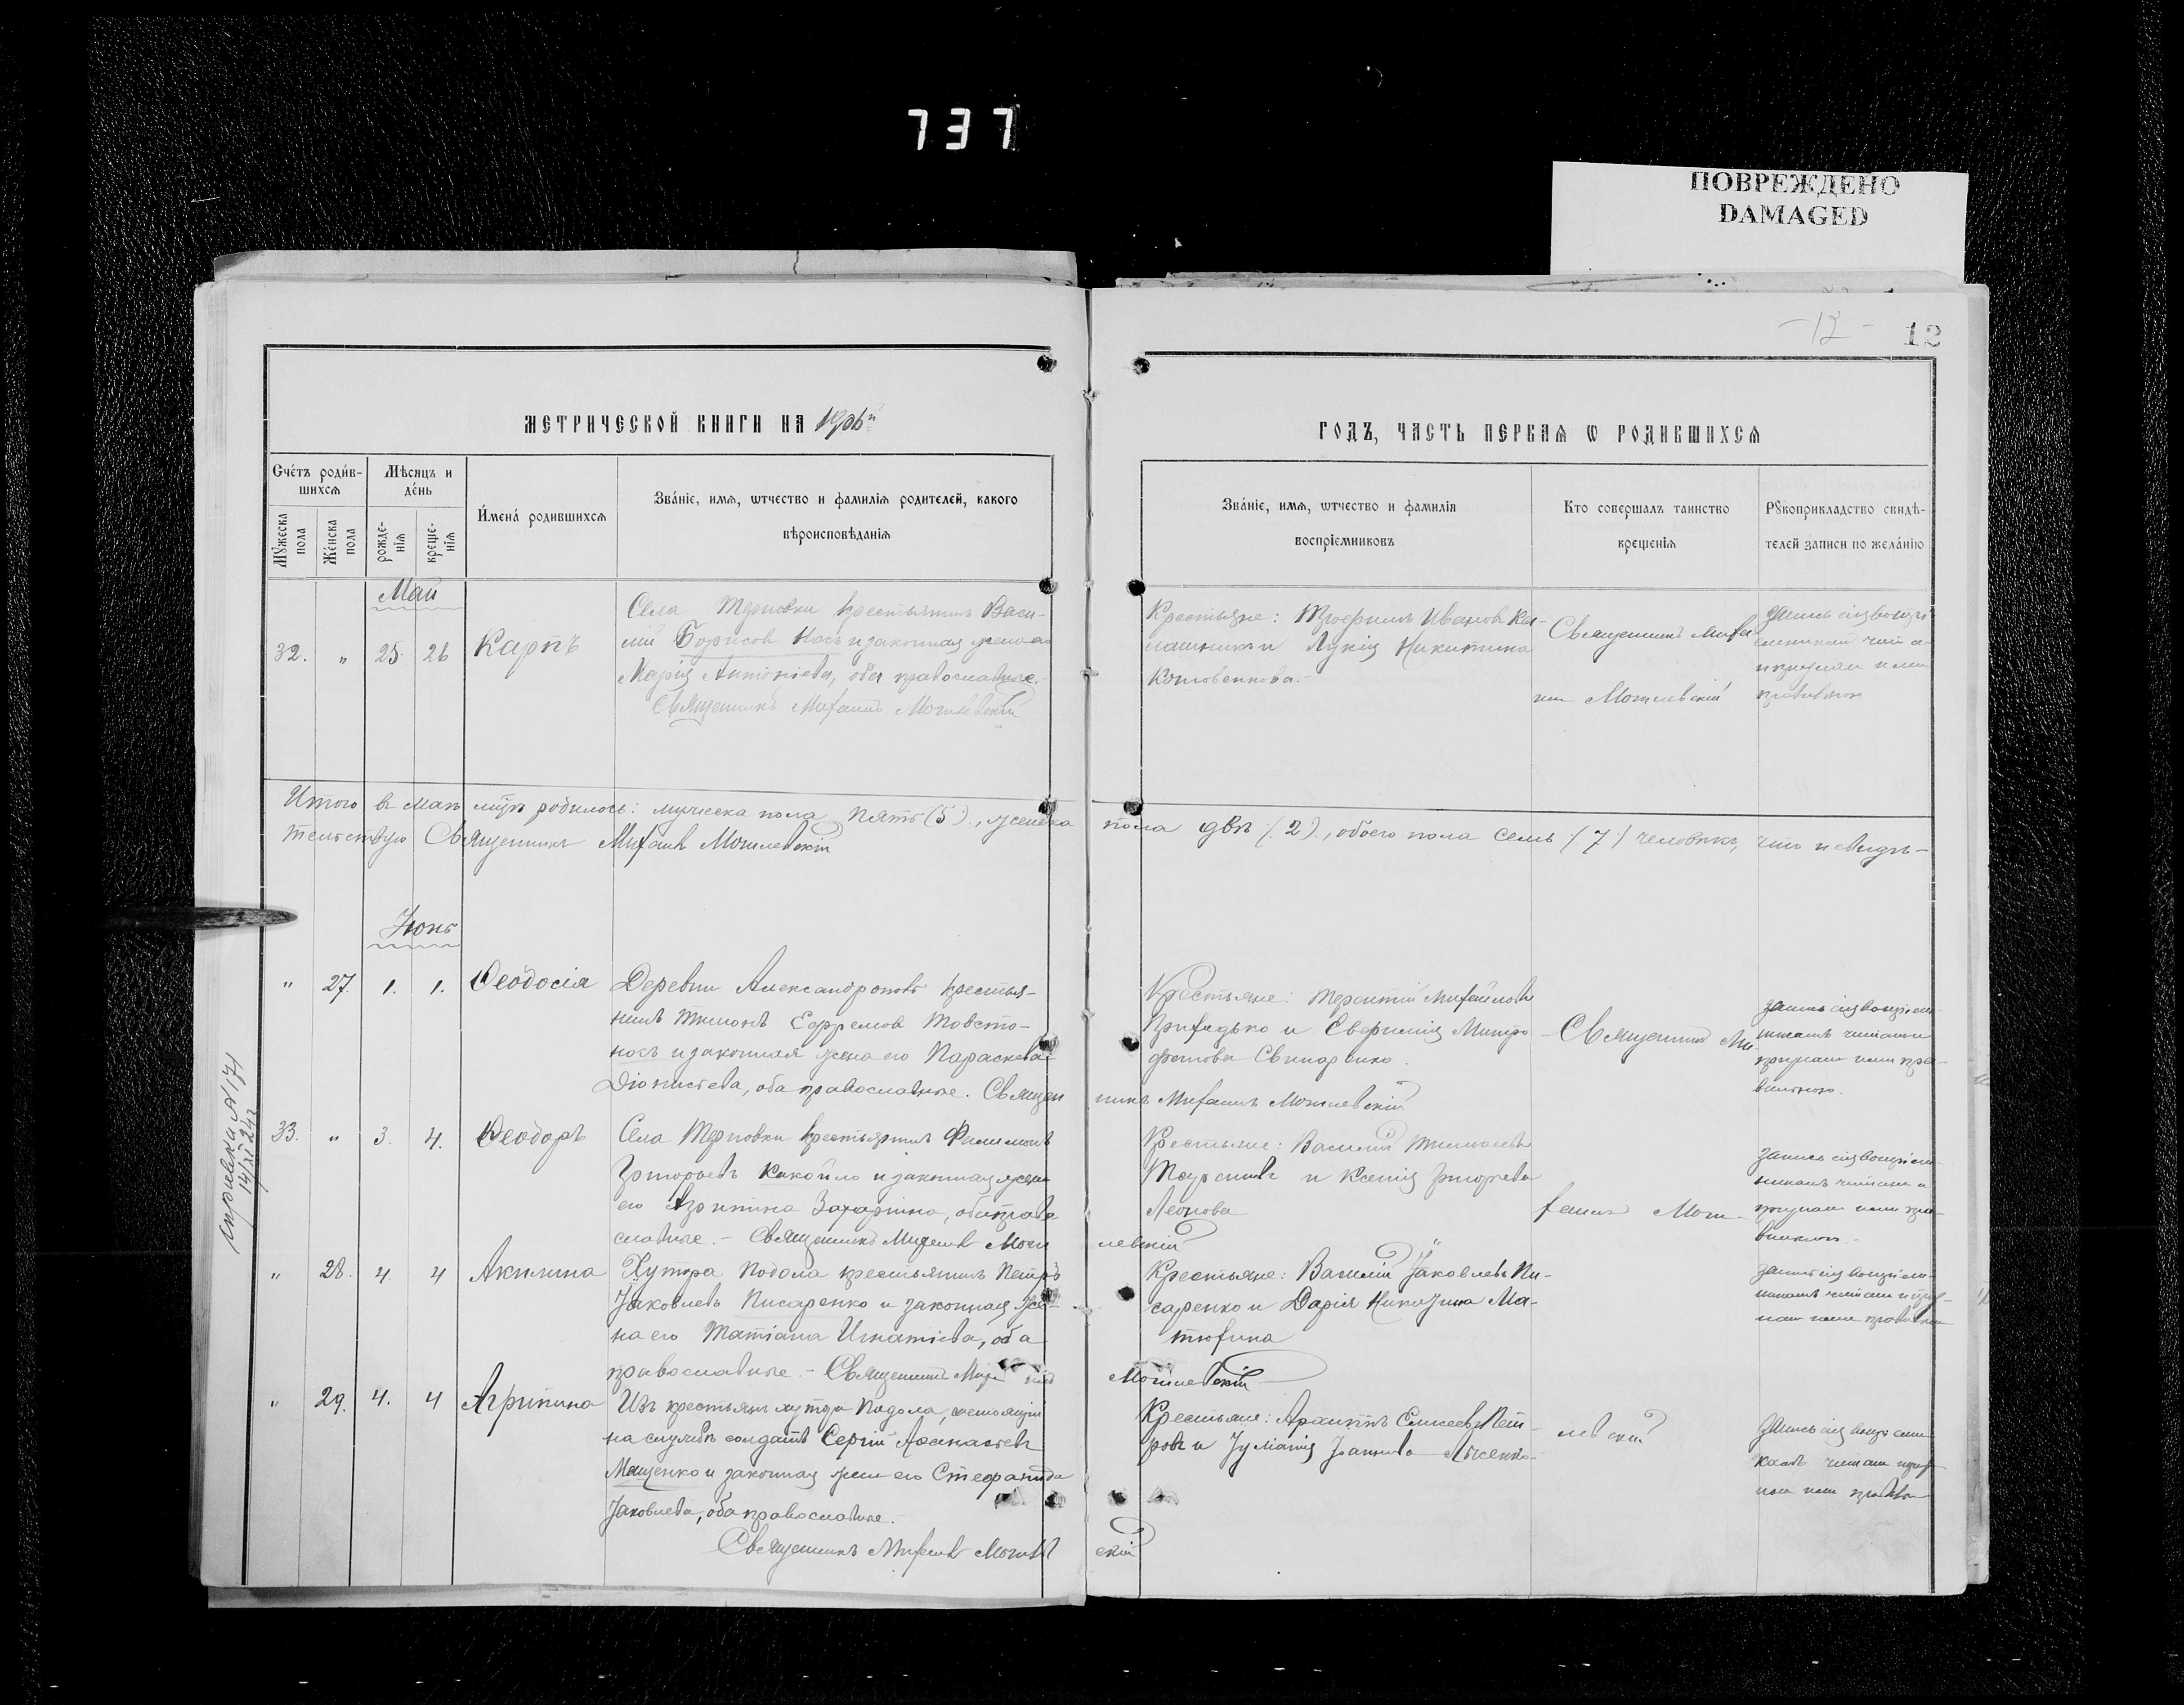 737
ПОВРЕЖДЕНО
DAMAGED
-12-
12
МЕТРИЧЕСКОЙ КНИГИ НА 1906й
ГОДЪ, ЧАСТЬ ПЕРВАЯ Ѡ РОДИВШИХСЯ
Сче́тъ роди́в-
шихсѧ
Мѣсяцъ и
де́нь
И́мена́ родившихсѧ
Зва́ніе, имѧ, ѡтчество и фамилія родителей, какого
вѣроисповѣданія
Мꙋжеска
пола
Же́нска
пола
рожде-
нія
креще-
нія
Зва́ніе, имѧ, ѡтчество и фамилія
воспріемниковъ
Кто совершалъ таинство
крещенія
Рꙋкоприкладство свидѣ-
телей записи по жела́нію
Май
32. " 25. 26 Карпъ
Села Терновки крестьянинъ Васи-
лій Борисов Носъ и законная жена его
Марія Антоніева, оба православные.
Священникъ Михаилъ Могилевскій
Крестьяне: Трофимъ Иванов Ка-
лашник и Лукія Никитина
Котовенкова.-
Священникъ Миха
илъ Могилевскій
Запись сія воспрі
емникам читана
и признана ими
правильною
Итого в маѣ мцѣ родилось: мужеска пола пять (5), женска пола двѣ (2), обоего пола семь (7) человѣкъ, что и свидѣ-
тельствую Священникъ Михаилъ Могилевскій
Іюнь
" 27. 1. 1. Ѳеодосія
Деревни Александровки крестья-
нинъ Тимонъ Ефремов Товсто-
носъ и законная жена его Параскева
Діонисіева, оба православные. Священникъ Михаилъ Могилевскій
Крестьяне: Терентій Михайловъ
Грихидько и Евфимія Митро-
фанова Свинаренко.
Священникъ Ми-
Запись сія воспріем
никамъ читана и
признана ими пра-
вильною.
33. " 3. 4. Ѳеодоръ
Села Терновки крестьянинъ Филимонъ
Григорьевъ Какойло и законная жена
его Агрипина Захаріина, оба право
славные.- Священникъ Михаилъ Могилевскій
Крестьяне: Василій Тимоѳеевъ
и Ксенія Григорьева
Леонова
хаилъ Моги-
Запись сія воспріем-
никамъ читана и
признана ими пра-
вильною.-
" 28. 4. 4 Акилина
Хутора Подола крестьянинъ Петръ
Яковлевъ Писаренко и законная же-
на его Татіана Игнатіева, оба
православные.- Священникъ Михаилъ Могилевскій
Крестьяне: Василій Яковлевъ Пи-
саренко и Дарія Никитина Ма-
тюхина
Запись сія воспріем-
никамъ читана и приз-
нана ими правильною
" 29. 4. 4 Агрипина
Изъ крестьянъ хутора Подола, состоящій
на службѣ солдатъ Сергій Аѳанасіевъ
Мащенко и законная жена его Стефанида
Яковлева, оба православные.
Священникъ Михаилъ Могилевскій
Крестьяне: Архиппъ Елисеевъ Пет-
ровъ и Іуліанія Іоаннова Лысенко.
левскій
Запись сія воспріемни-
камъ читана и приз-
нана ими правильною
Кириевка N 171
14/XI 24г